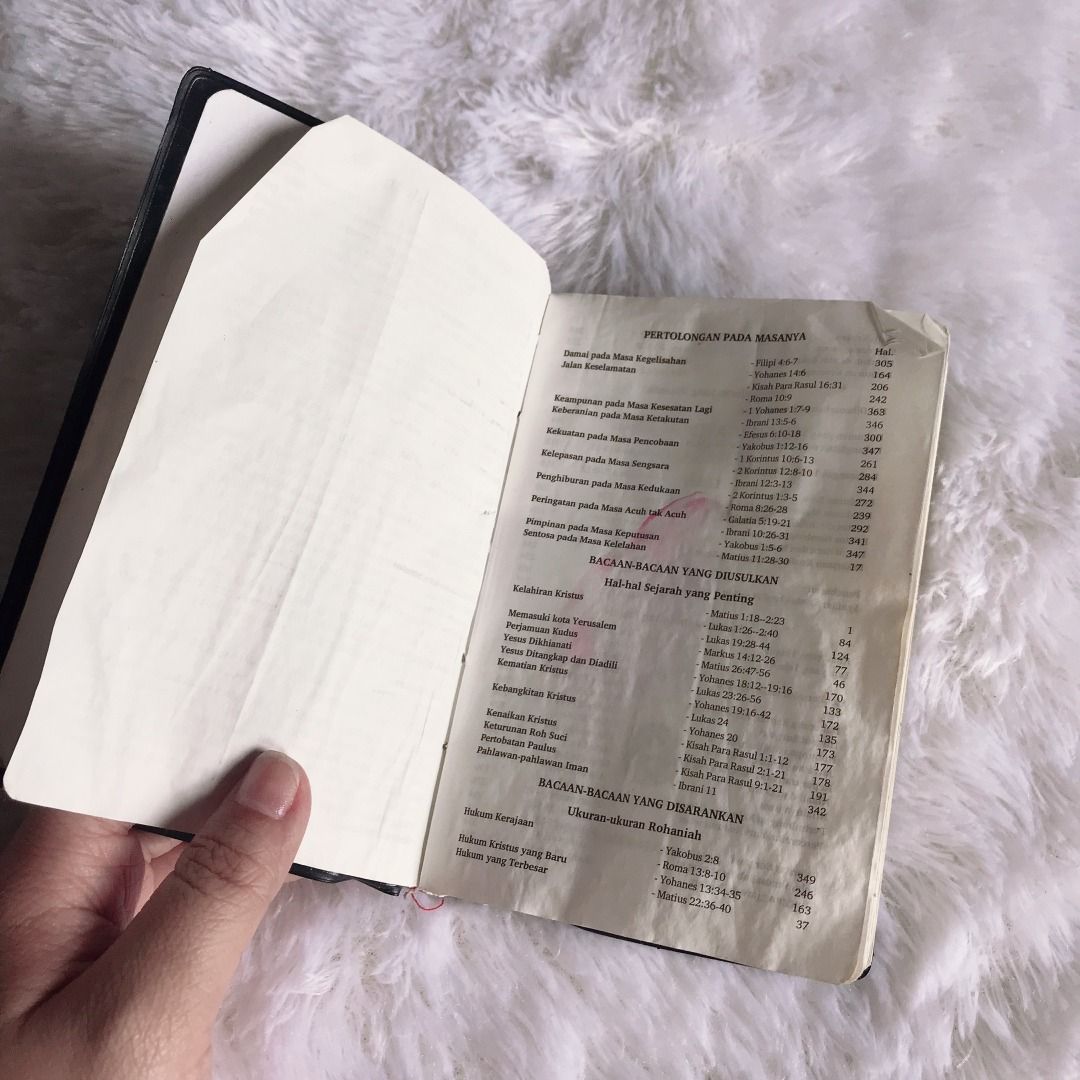 PERTOLONGAN PADA MASANYA
Hal.
Damai pada Masa Kegelisahan - Filipi 4:6-7 305
Jalan Keselamatan - Yohanes 14:6 164
- Kisah Para Rasul 16:31 206
- Roma 10:9 242
Keampunan pada Masa Kesesatan Lagi - 1 Yohanes 1:7-9 363
Keberanian pada Masa Ketakutan - Ibrani 13:5-6 346
- Efesus 6:10-18 300
Kekuatan pada Masa Pencobaan - Yakobus 1:12-16 347
- 1 Korintus 10:6-13 261
Kelepasan pada Masa Sengsara - 2 Korintus 12:8-10 284
- Ibrani 12:3-13 344
Penghiburan pada Masa Kedukaan - 2 Korintus 1:3-5 272
- Roma 8:26-28 239
Peringatan pada Masa Acuh tak Acuh - Galatia 5:19-21 292
- Ibrani 10:26-31 341
Pimpinan pada Masa Keputusan - Yakobus 1:5-6 347
Sentosa pada Masa Kelelahan - Matius 11:28-30 17
BACAAN-BACAAN YANG DIUSULKAN
Hal-hal Sejarah yang Penting
Kelahiran Kristus - Matius 1:18--2:23 1
- Lukas 1:26--2:40 84
Memasuki kota Yerusalem - Lukas 19:28-44 124
Perjamuan Kudus - Markus 14:12-26 77
Yesus Dikhianati - Matius 26:47-56 46
Yesus Ditangkap dan Diadili - Yohanes 18:12--19:16 170
Kematian Kristus - Lukas 23:26-56 133
- Yohanes 19:16-42 172
Kebangkitan Kristus - Lukas 24 135
- Yohanes 20 173
Kenaikan Kristus - Kisah Para Rasul 1:1-12 177
Keturunan Roh Suci - Kisah Para Rasul 2:1-21 178
Pertobatan Paulus - Kisah Para Rasul 9:1-21 191
Pahlawan-pahlawan Iman - Ibrani 11 342
BACAAN-BACAAN YANG DISARANKAN
Ukuran-ukuran Rohaniah
Hukum Kerajaan - Yakobus 2:8 349
- Roma 13:8-10 246
Hukum Kristus yang Baru - Yohanes 13:34-35 163
Hukum yang Terbesar - Matius 22:36-40 37